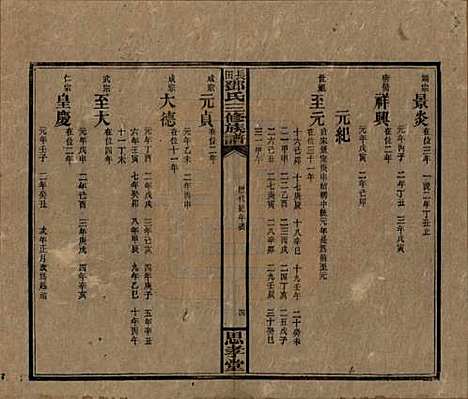 端宗 景炎
在位二年 一號二年丁丑止
元年丙子 二年丁丑 三年戊寅
衛王 祥興
在位二年
元年戊寅 二年己卯
元紀
世祖 至元
在位三十一年
十六己卯 十七庚辰 十八辛巳 十九壬午 二十癸未
二一甲申 二二乙酉 二三丙戌 二四丁亥 二五戊子
二六己丑 二七庚寅 二八辛卯 二九壬辰 三十癸巳
三一甲午
長田鄧氏三修族譜
歷代紀年考
四
思孝堂
成宗 元貞
在位二年
元年乙未 二年丙申
成宗 大德
在位十一年
元年丁酉 二年戊戌 三年己亥 四年庚子 五年辛丑
六年壬寅 七年癸卯 八年甲辰 九年乙巳 十年丙午
十一丁未
武宗 至大
在位四年
元年戊申 二年己酉 三年庚戌 四年辛亥
仁宗 皇慶
在位二年
元年壬子 二年癸丑 次年正月改爲延祐